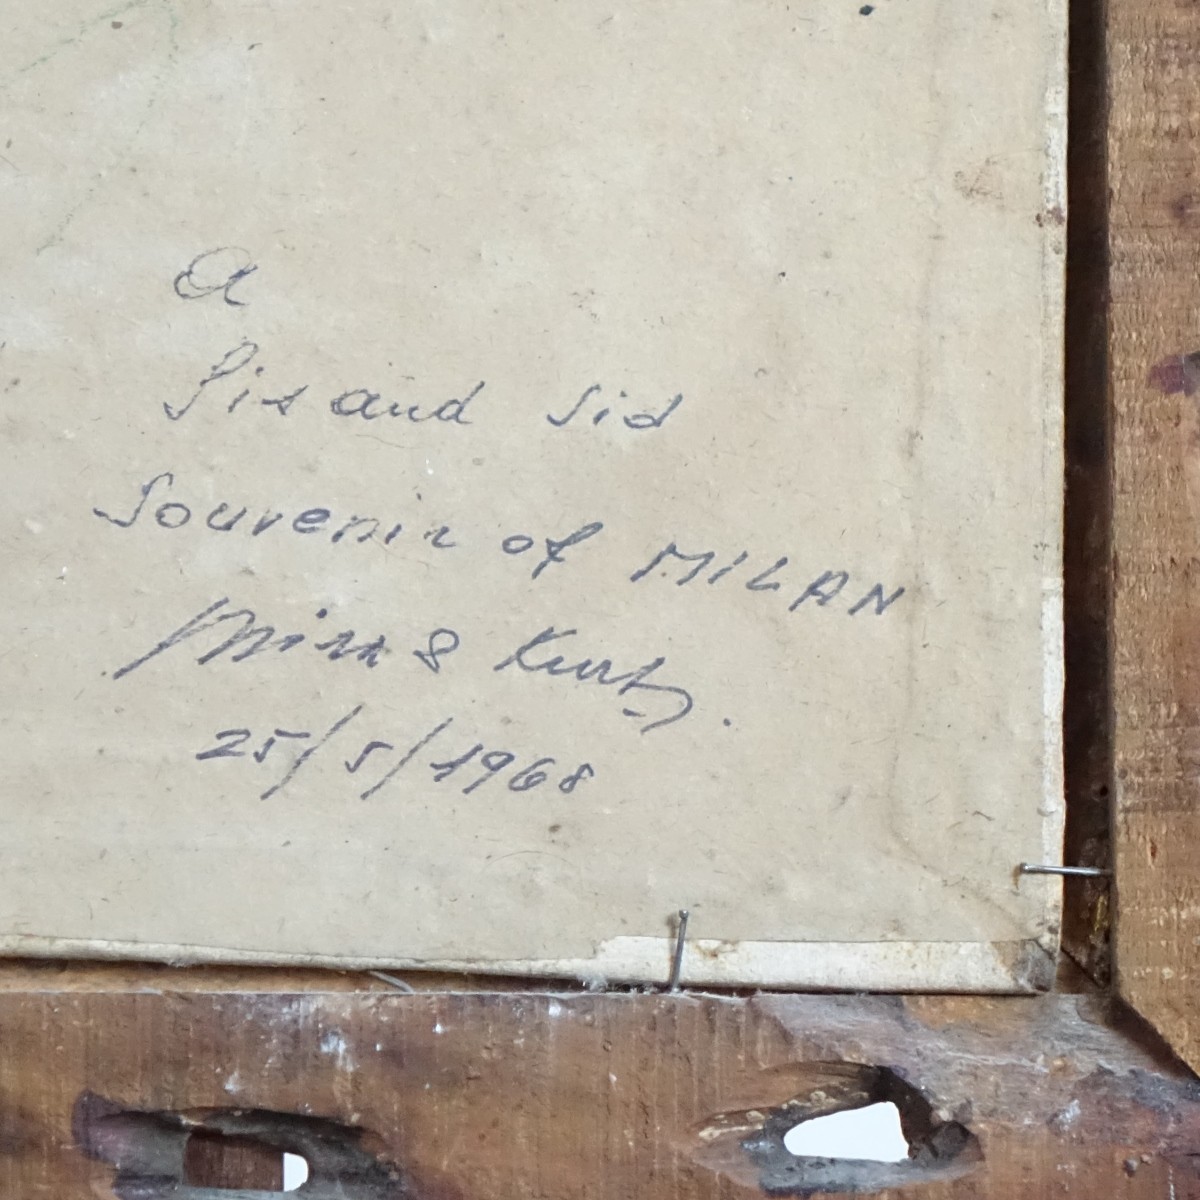 a
and Sid
Souvenir of MILAN
& Kurt
25/5/1968